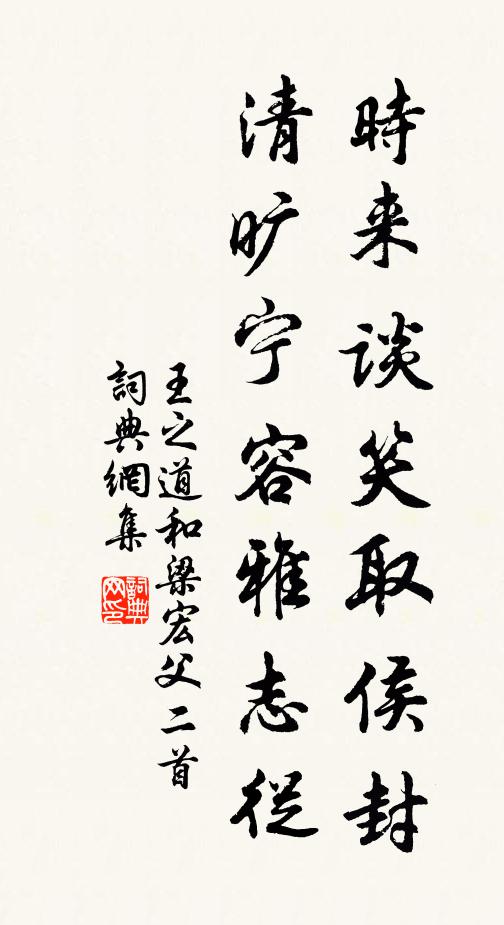 時来談笑取侯封
清旷宁容雅志從
王之道和梁宏父二首
詞典網集
詞典網印